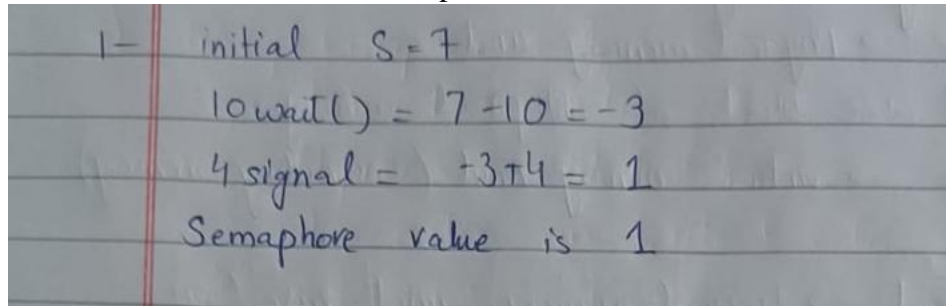 1- initial S = 7
10 wait() = 7 - 10 = -3
4 signal = -3+4 = 1
Semaphore value is 1